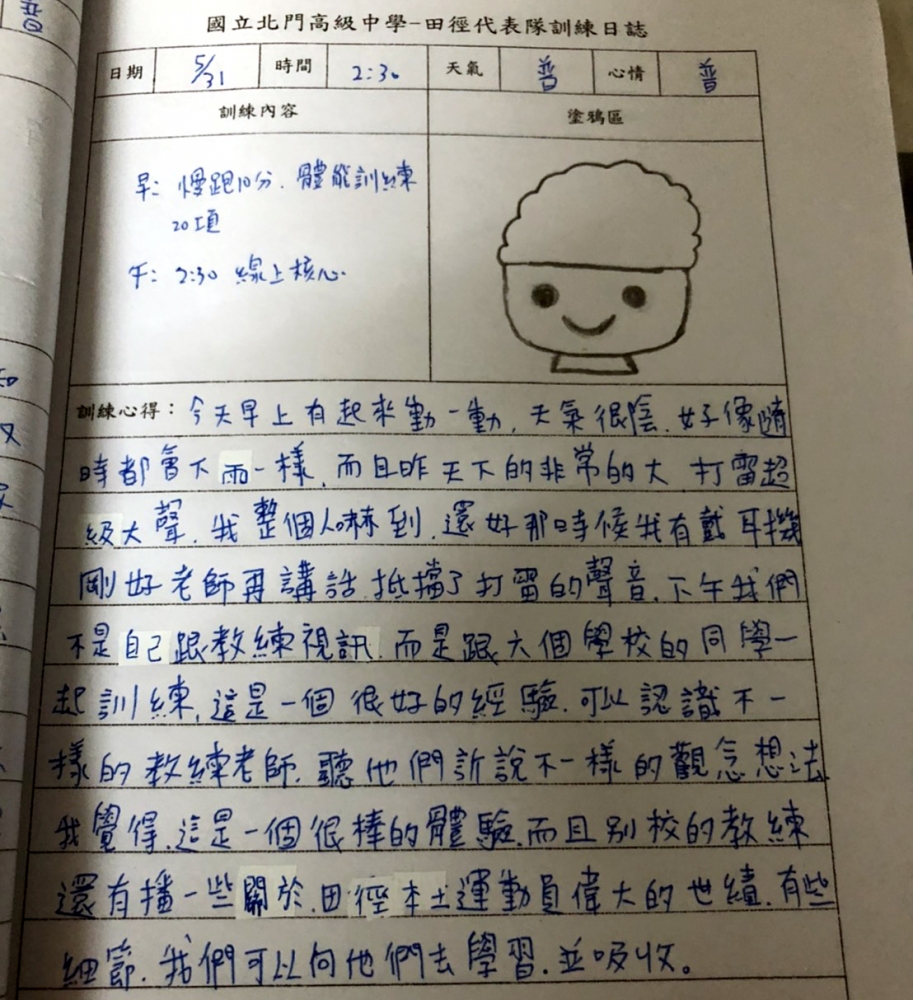 國立北門高級中學-田徑代表隊訓練日誌
日期 5/31 時間 2:30 天氣 普 心情 普
訓練內容 塗鴉區
早: 慢跑10分. 體能訓練
20項
午: 2:30 線上核心.
訓練心得：今天早上有起來動一動, 天氣很陰. 好像隨
時都會下雨一樣, 而且昨天下的非常的大 打雷超
級大聲. 我整個人嚇到. 還好那時候我有戴耳機
剛好老師再講話 抵擋了打雷的聲音. 下午我們
不是自己跟教練視訊 而是跟六個學校的同學一
起訓練, 這是一個很好的經驗. 可以認識不一
樣的教練老師. 聽他們訴說不一樣的觀念想法
我覺得. 這是一個很棒的體驗. 而且別校的教練
還有播一些關於. 田徑本土運動員偉大的世績. 有些
細節. 我們可以向他們去學習. 並吸收。